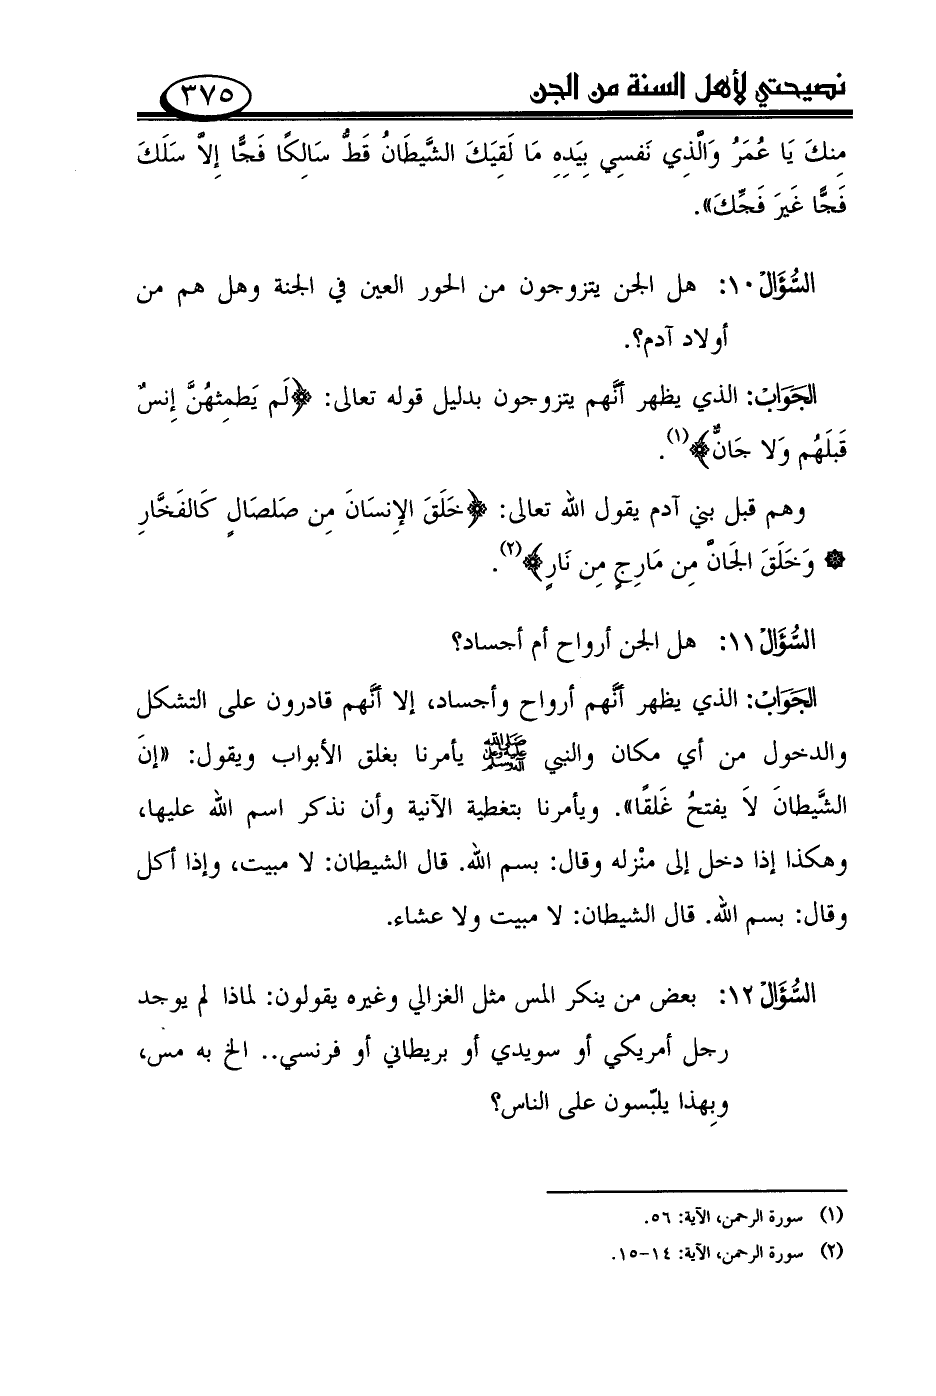 نصيحتي لأهل السنة من الجن
٣٧٥
مِنكَ يَا عُمَرُ وَالَّذِي نَفسِي بِيَدِهِ مَا لَقِيَكَ الشَّيطَانُ قَطُّ سَالِكًا فَجًّا إِلاَّ سَلَكَ
فَجًّا غَيرَ فَجِّكَ».
السُّؤَالُ ١٠: هل الجن يتزوجون من الحور العين في الجنة وهل هم من
أولاد آدم؟.
الجَوَابُ: الذي يظهر أنَّهم يتزوجون بدليل قوله تعالى: ﴿لَم يَطمِثهُنَّ إِنسٌ
قَبلَهُم وَلا جَانٌّ﴾(١).
وهم قبل بني آدم يقول الله تعالى: ﴿خَلَقَ الإِنسَانَ مِن صَلصَالٍ كَالفَخَّارِ
۞ وَخَلَقَ الجَانَّ مِن مَارِجٍ مِن نَارٍ﴾(٢).
السُّؤَالُ ١١: هل الجن أرواح أم أجساد؟
الجَوَابُ: الذي يظهر أنَّهم أرواح وأجساد، إلا أنَّهم قادرون على التشكل
والدخول من أي مكان والنبي ﷺ يأمرنا بغلق الأبواب ويقول: «إِنَ
الشَّيطانَ لاَ يفتحُ غَلقًا». ويأمرنا بتغطية الآنية وأن نذكر اسم الله عليها،
وهكذا إذا دخل إلى منْزله وقال: بسم الله. قال الشيطان: لا مبيت، وإذا أكل
وقال: بسم الله. قال الشيطان: لا مبيت ولا عشاء.
السُّؤَالُ ١٢: بعض من ينكر المس مثل الغزالي وغيره يقولون: لماذا لم يوجد
رجل أمريكي أو سويدي أو بريطاني أو فرنسي.. الخ به مس،
وبِهذا يلبّسون على الناس؟
(١) سورة الرحمن، الآية: ٥٦.
(٢) سورة الرحمن، الآية: ١٤-١٥.